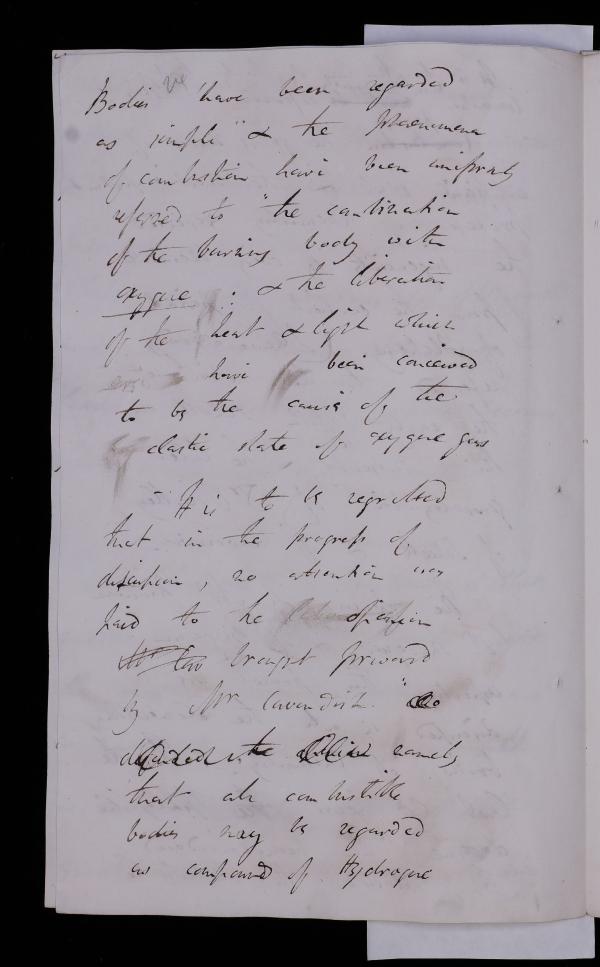 Bodies have been regarded
as simple" & the phænomena
of combustion have been uniformly
referred to "the combination
of the burning body with
oxygene : & the liberation
of the heat & light which
have been conceived
to be the cause of the
elastic state of oxygene gas
- It is to be regretted
that in the progress of
discussion, no attention was
paid to the opinion
brought forward
by Mr Cavendish "
the namely
that all combustible
bodies may be regarded
as compound of Hydrogene